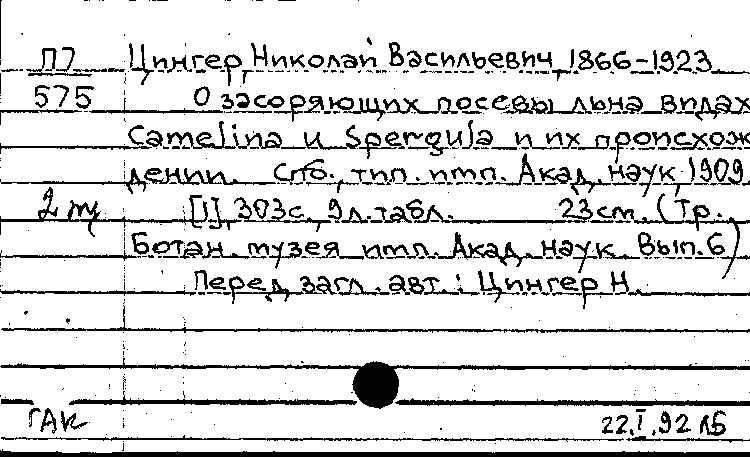 П7 Цингер, Николай Васильевич, 1866-1923
575 О засоряющих посевы льна видах
Camelina и Spergula и их происхож
дении. Спб., тип. имп. Акад. наук, 1909.
[1], 303с., 9л. табл. 23см. (Тр.
Ботан. музея имп. Акад. наук. Вып. 6)
Перед загл. авт.: Цингер Н.
ГАК 22.I.92 ЛБ